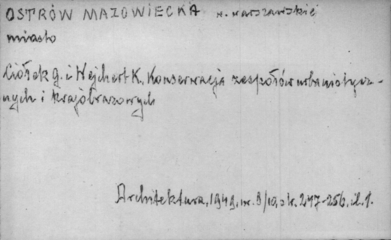 OSTRÓW MAZOWIECKA w. warszawskie
miasto
Ciołek G. i Wejchert K. Konserwacja zespołów urbanistycz-
nych i krajobrazowych
Architektura, 1949, nr. 9/10, str. 247-256, il. 1.